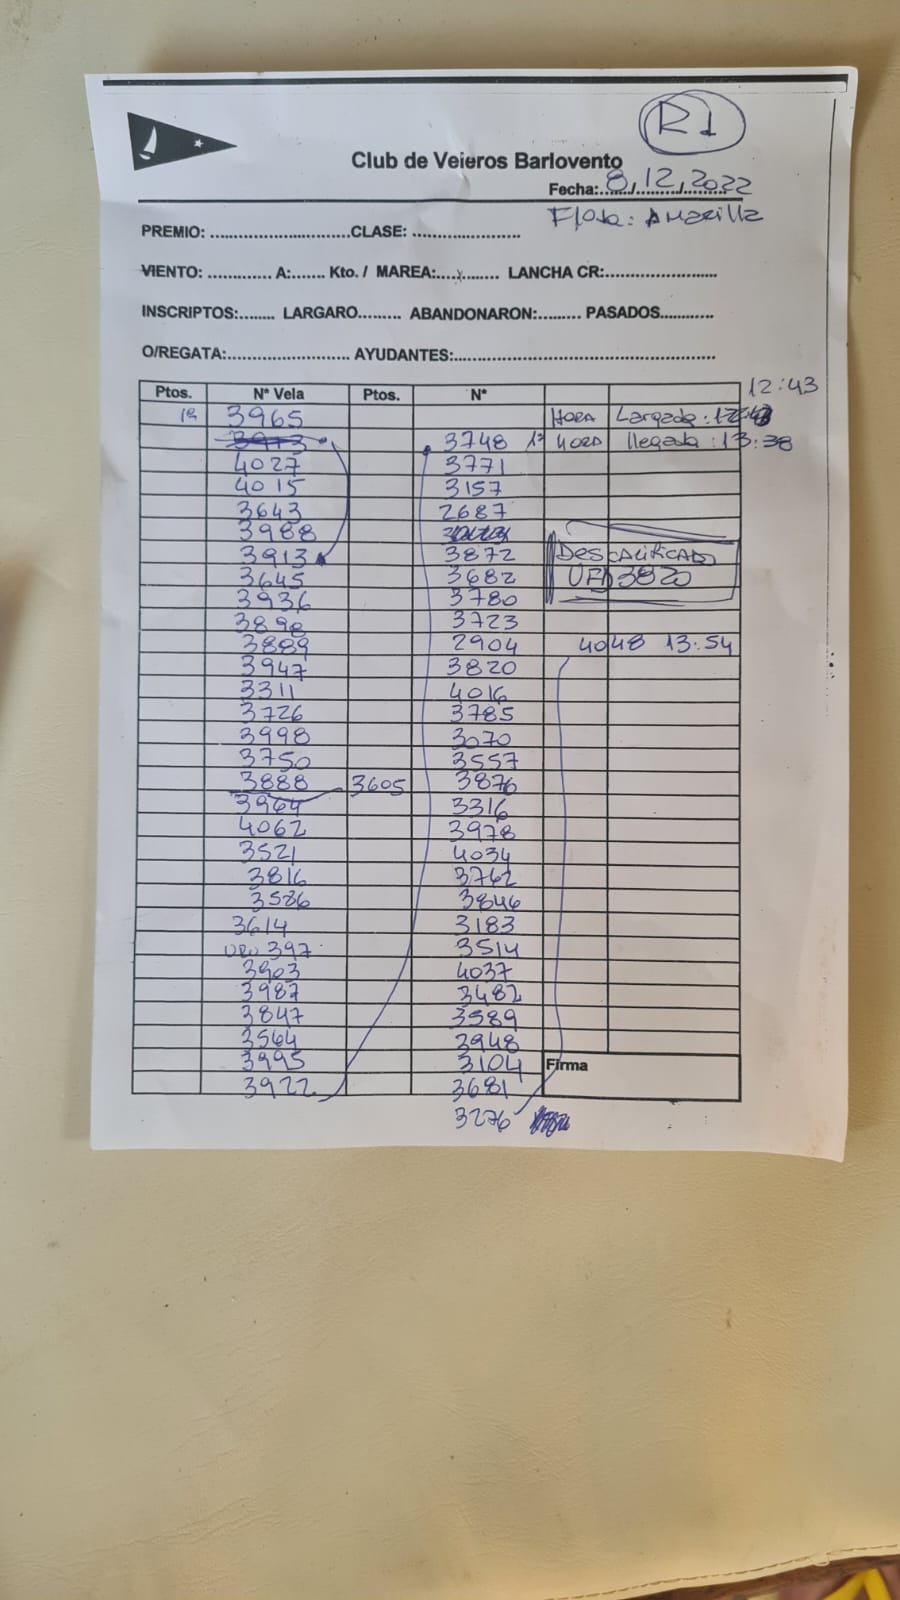 R1
Club de Veieros Barlovento
Fecha: 8/12/2022
Flota: Amarilla
PREMIO: ............................CLASE: ......................
VIENTO: ............. A:....... Kto. / MAREA:............. LANCHA CR:.......................
INSCRIPTOS:........ LARGARO......... ABANDONARON:......... PASADOS...........
O/REGATA:......................... AYUDANTES:......................................................
12:43
Ptos. Nº Vela Ptos. Nº
1º 3965 HORA Largada:
3748 1º HORA llegada: 13:38
4027 3771
4015 3157
3643 2687
3988
3913 3872 Descalificado
3645 3682 UFD 3820
3936 3780
3898 3723
3889 2904 4048 13:54
3947 3820
3311 4016
3726 3785
3998 3070
3750 3557
3888 3605 3876
3964 3316
4062 3978
3521 4034
3816 3762
3586 3846
3614 3183
URU 397 3514
3903 4037
3987 3482
3847 3589
3564 3948
3995 3104 Firma
3922 3681
3276